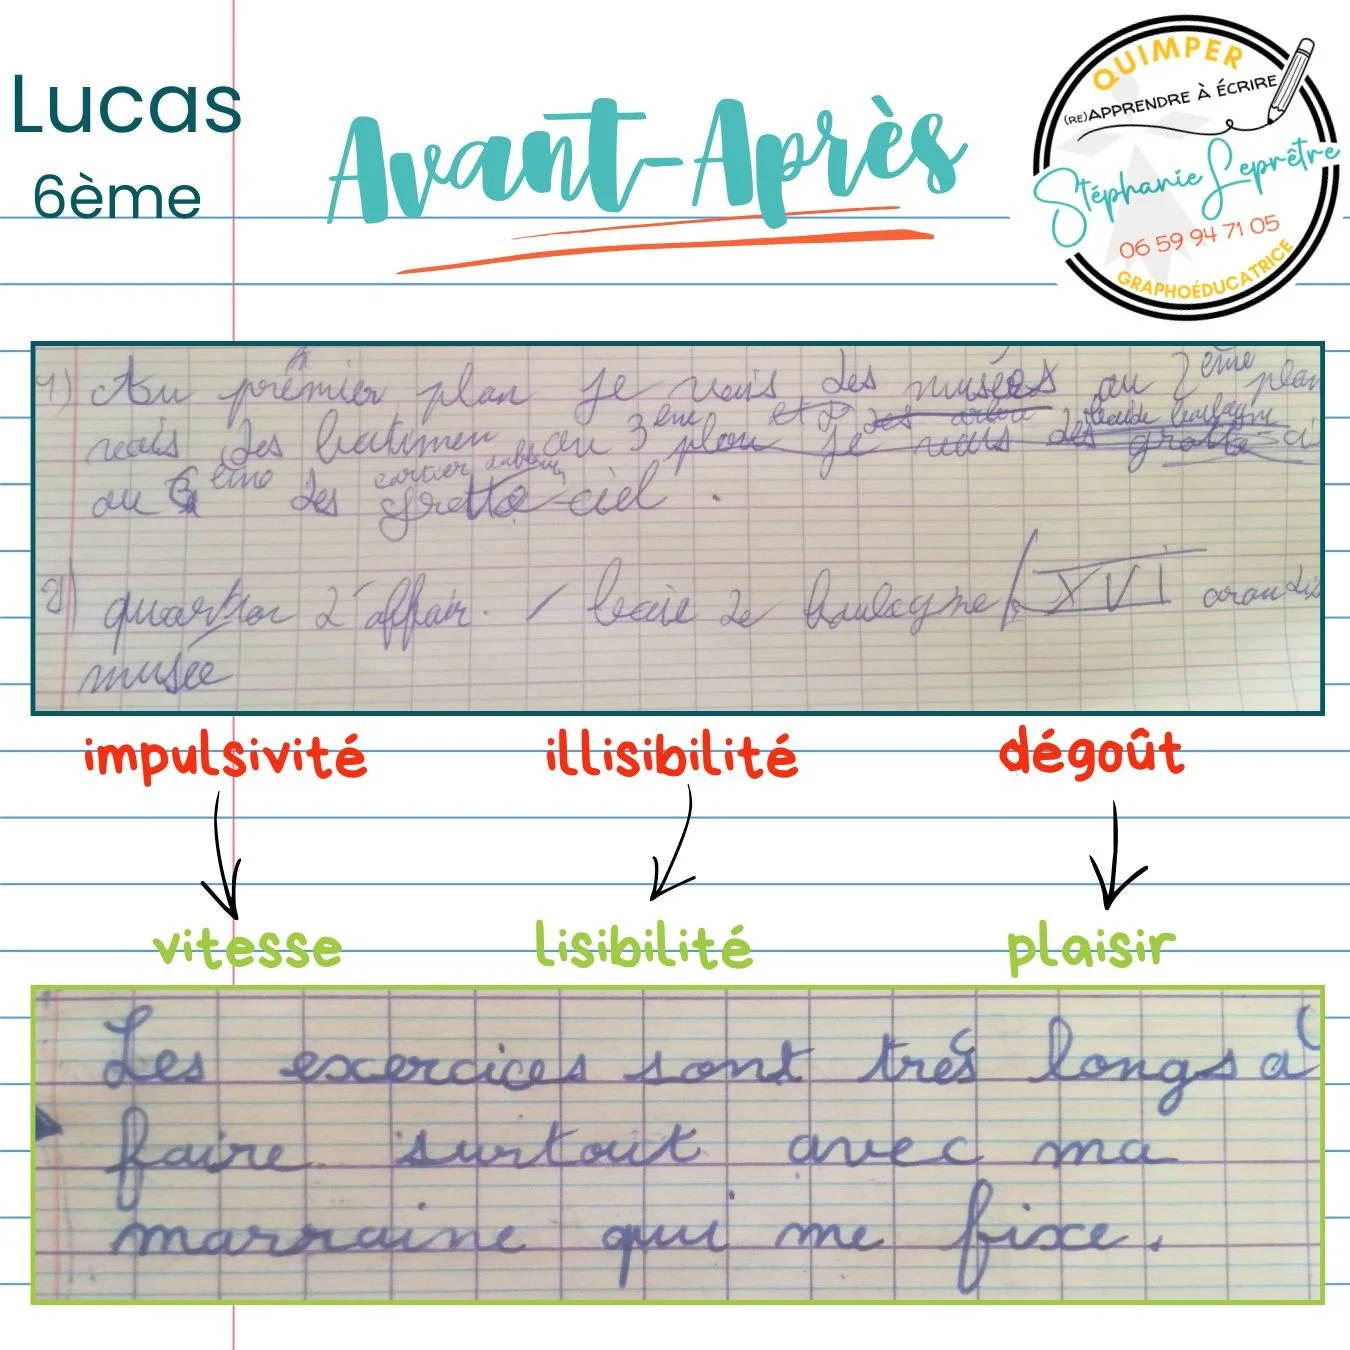 Lucas
6ème
Avant-Après
QUIMPER
(RE)APPRENDRE À ÉCRIRE
Stéphanie Leprêtre
06 59 94 71 05
GRAPHOÉDUCATRICE
1) Au premier plan je vois des musées au 2ème plan
vois des batimen au 3ème plan je vois des
au ème des cartier gratte-ciel.
2) quartier d'affair / boie de boulogne / XVI arondis
musee
impulsivité illisibilité dégoût
vitesse lisibilité plaisir
Les exercices sont très longs à
faire surtout avec ma
marraine qui me fixe.